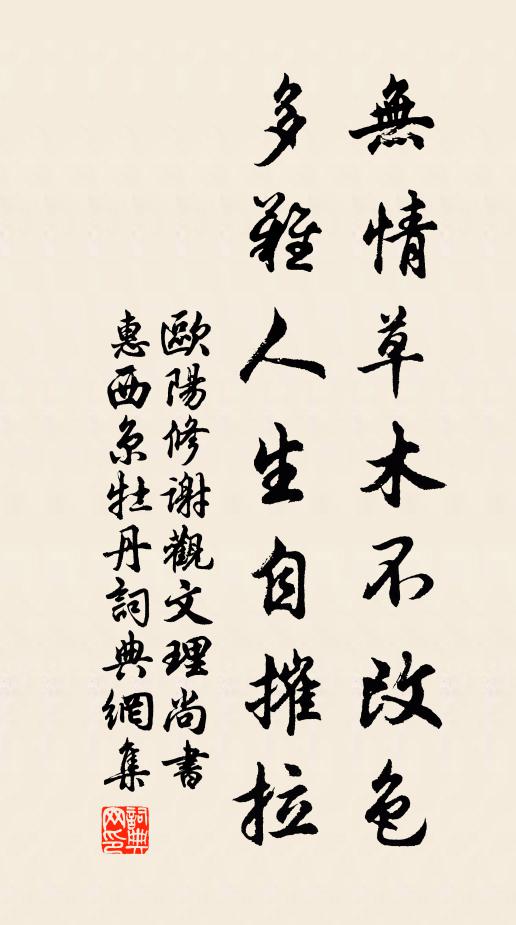 無情草木不改色
多難人生自摧拉
歐陽修謝觀文理尚書
惠西京牡丹詞典網集
詞典
网印